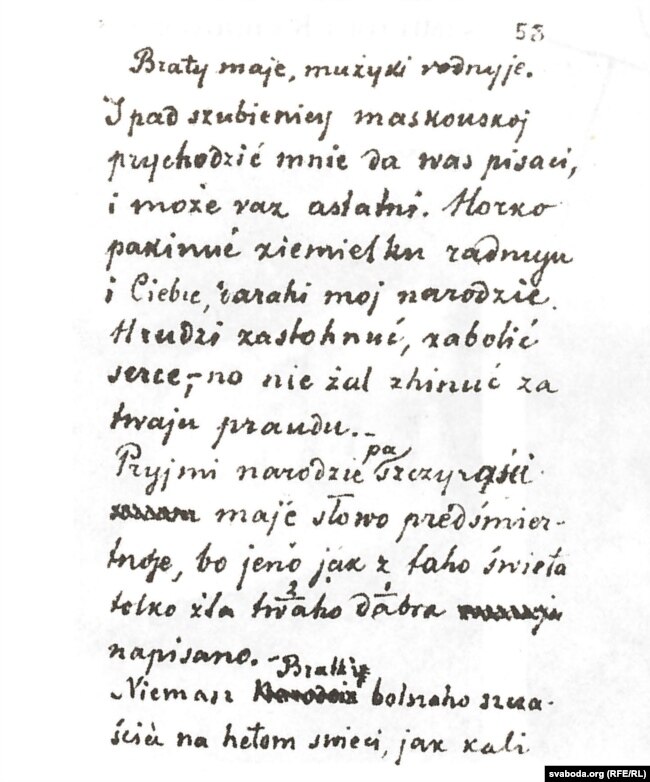 58
Brały maje, mużyki rodnyje.
I pad szubienicy maskouskoj
prychodzić mnie da was pisaci,
i może raz astatni. Horko
pakinuć ziemielku radnuju
i Ciebie, darahi moj narodzie.
Hrudzi zastohnuć, zabolić
serce, no nie żal zhinuć za
twaju praudu.
pa
Pryjmi narodzie szczyrości
maje słowo predśmier-
tnoje, bo jeno jak z taho świeta
2 1
tolko źla twaho dabra
napisano.
Bratkij
Niemasz bolszaho szcza-
ścia na hetom swieci, jak kali
svaboda.org (RFE/RL)